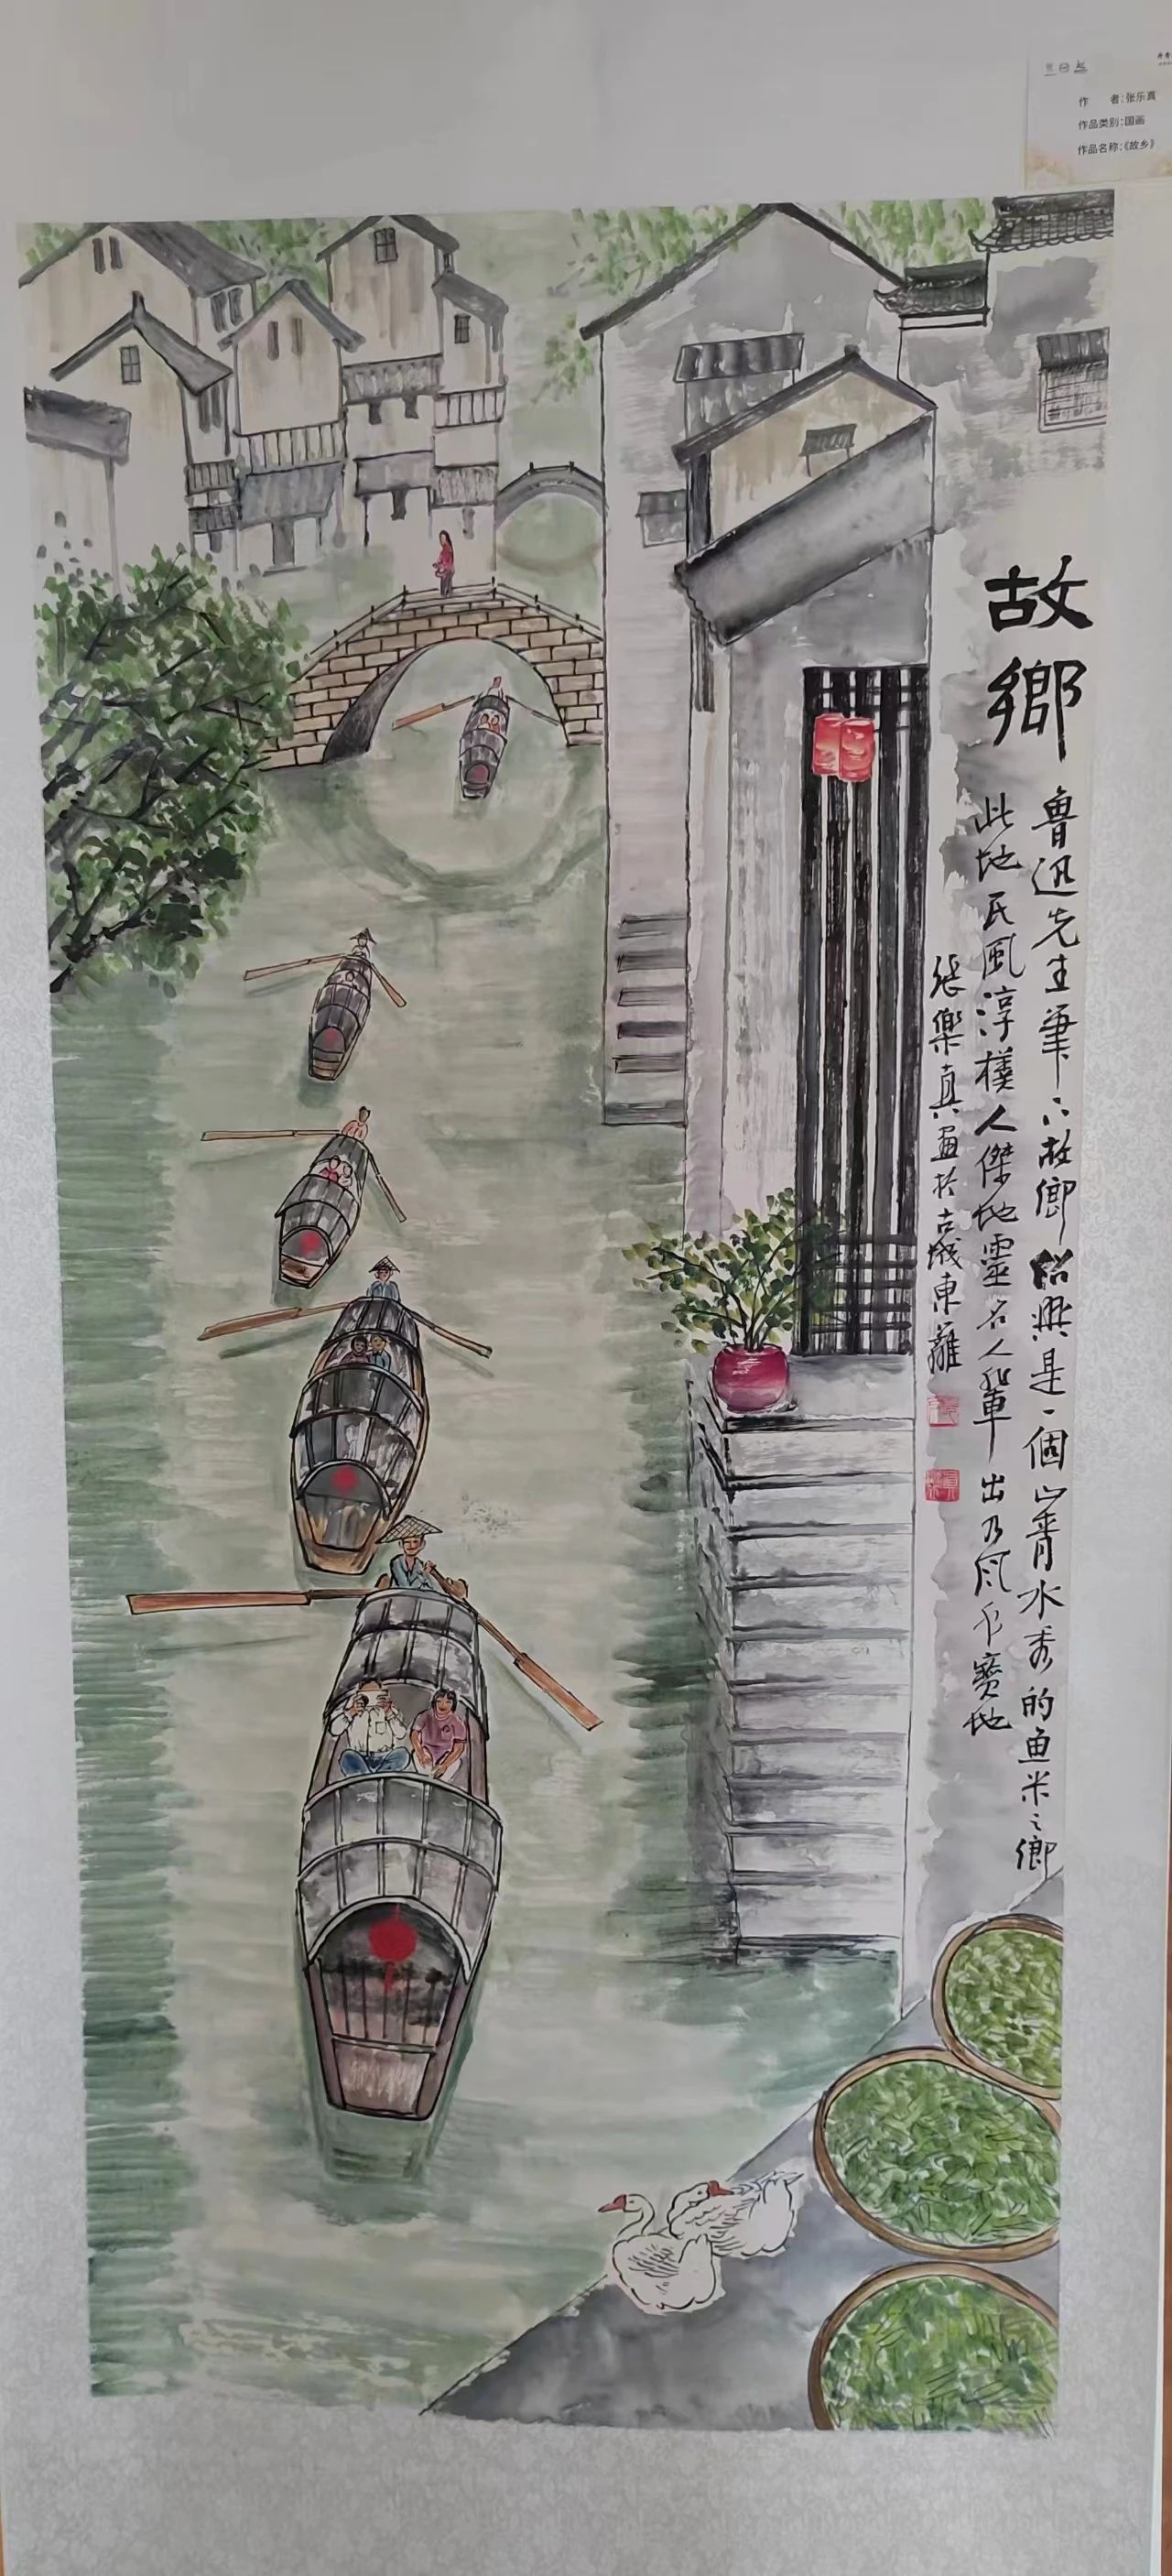 作 者:张乐真
作品类别:国画
作品名称:《故乡》
故鄉
魯迅先生筆下故鄉紹興是一個山青水秀的鱼米之鄉
此地民風淳樸人傑地靈名人輩出乃風水寶地
張樂真画於古城東籬